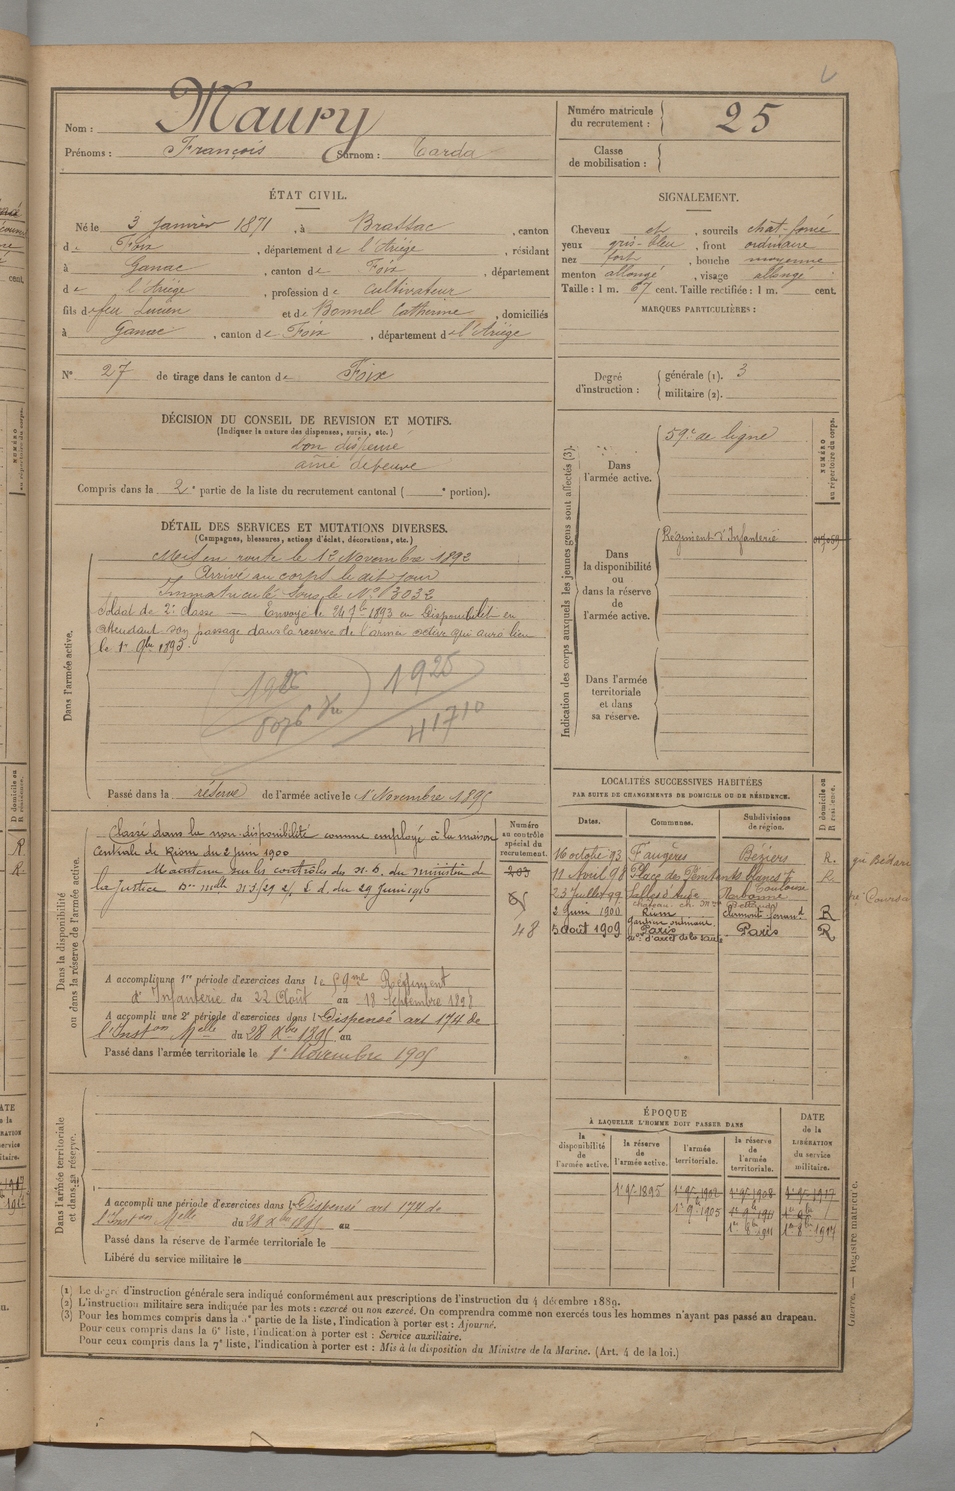 Nom : Maury
Prénoms : François Surnom : Carda
Numéro matricule du recrutement : 25
Classe de mobilisation :
ÉTAT CIVIL.
Né le 3 Janvier 1871, à Brassac, canton
de Foix, département de l'Ariège, résidant
à Ganac, canton de Foix, département
de l'Ariège, profession de Cultivateur
fils de feu Lucien et de Bonnel Catherine, domiciliés
à Ganac, canton de Foix, département de l'Ariège
N° 27 de tirage dans le canton de Foix
SIGNALEMENT.
Cheveux et, sourcils chat-foncé
yeux gris-bleu, front ordinaire
nez fort, bouche moyenne
menton allongé, visage allongé
Taille : 1 m. 67 cent. Taille rectifiée : 1 m. cent.
MARQUES PARTICULIÈRES :
Degré d'instruction : générale (1). 3
militaire (2).
DÉCISION DU CONSEIL DE REVISION ET MOTIFS.
(Indiquer la nature des dispenses, sursis, etc.)
bon dispensé
aîné de veuve
Compris dans la 2e partie de la liste du recrutement cantonal ( e portion).
DÉTAIL DES SERVICES ET MUTATIONS DIVERSES.
(Campagnes, blessures, actions d'éclat, décorations, etc.)
Dans l'armée active.
Mis en route le 12 Novembre 1892
Arrivé au corps le dit jour
Immatriculé sous le N° 3032
Soldat de 2e classe — Envoyé le 24 7bre 1893 en Disponibilité en
attendant son passage dans la réserve de l'armée active qui aura lieu
le 1er 9bre 1895.
1925
4710
Passé dans la réserve de l'armée active le 1 Novembre 1895
Indication des corps auxquels les jeunes gens sont affectés (3).
NUMÉRO au répertoire du corps.
Dans l'armée active.
59e de ligne
Dans la disponibilité ou dans la réserve de l'armée active.
Régiment d'Infanterie
Dans l'armée territoriale et dans sa réserve.
Dans la disponibilité ou dans la réserve de l'armée active.
Classé dans la non-disponibilité comme employé à la maison
Centrale de Riom du 2 Juin 1900
Maintenu sur les contrôles de N. D. du ministère de
la Justice
du 29 Juin 1916
Numéro au contrôle spécial du recrutement.
203
48
A accompli une 1re période d'exercices dans le 59me Régiment
d'Infanterie du 22 Août au 18 Septembre 1898
A accompli une 2e période d'exercices dans l Dispensé art 174 de
l'Inston Melle du 28 Xbre 1895 au
Passé dans l'armée territoriale le 1er Novembre 1905
LOCALITÉS SUCCESSIVES HABITÉES
PAR SUITE DE CHANGEMENTS DE DOMICILE OU DE RÉSIDENCE.
Dates. Communes. Subdivisions de région. D domicile ou R résidence.
16 octobre 93 Faugères Béziers R.
11 Avril 98 Place des Pénitents blancs Toulouse R
23 Juillet 99 Salles d'Aude Narbonne
2 Juin 1900 Riom Clermont-ferrand R
gardien ordinaire
5 août 1909 Paris Paris R
mon d'arrêt de la Santé
Dans l'armée territoriale et dans sa réserve.
A accompli une période d'exercices dans l Dispensé art 174 de
l'Inston Melle du 28 Xbre 1895 au
Passé dans la réserve de l'armée territoriale le
Libéré du service militaire le
ÉPOQUE
À LAQUELLE L'HOMME DOIT PASSER DANS
la disponibilité de l'armée active. la réserve de l'armée active. l'armée territoriale. la réserve de l'armée territoriale.
DATE de la LIBÉRATION du service militaire.
1er 9bre 1895 1er 9bre 1902 1er 9bre 1908 1er 9bre 1917
1er 9bre 1905 1er 9bre 1911
1er 8bre 1911 1er 8bre 1917
(1) Le degré d'instruction générale sera indiqué conformément aux prescriptions de l'instruction du 4 décembre 1889.
(2) L'instruction militaire sera indiquée par les mots : exercé ou non exercé. On comprendra comme non exercés tous les hommes n'ayant pas passé au drapeau.
(3) Pour les hommes compris dans la partie de la liste, l'indication à porter est : Ajourné.
Pour ceux compris dans la 6e liste, l'indication à porter est : Service auxiliaire.
Pour ceux compris dans la 7e liste, l'indication à porter est : Mis à la disposition du Ministre de la Marine. (Art. 4 de la loi.)
Guerre. — Registre matricule.